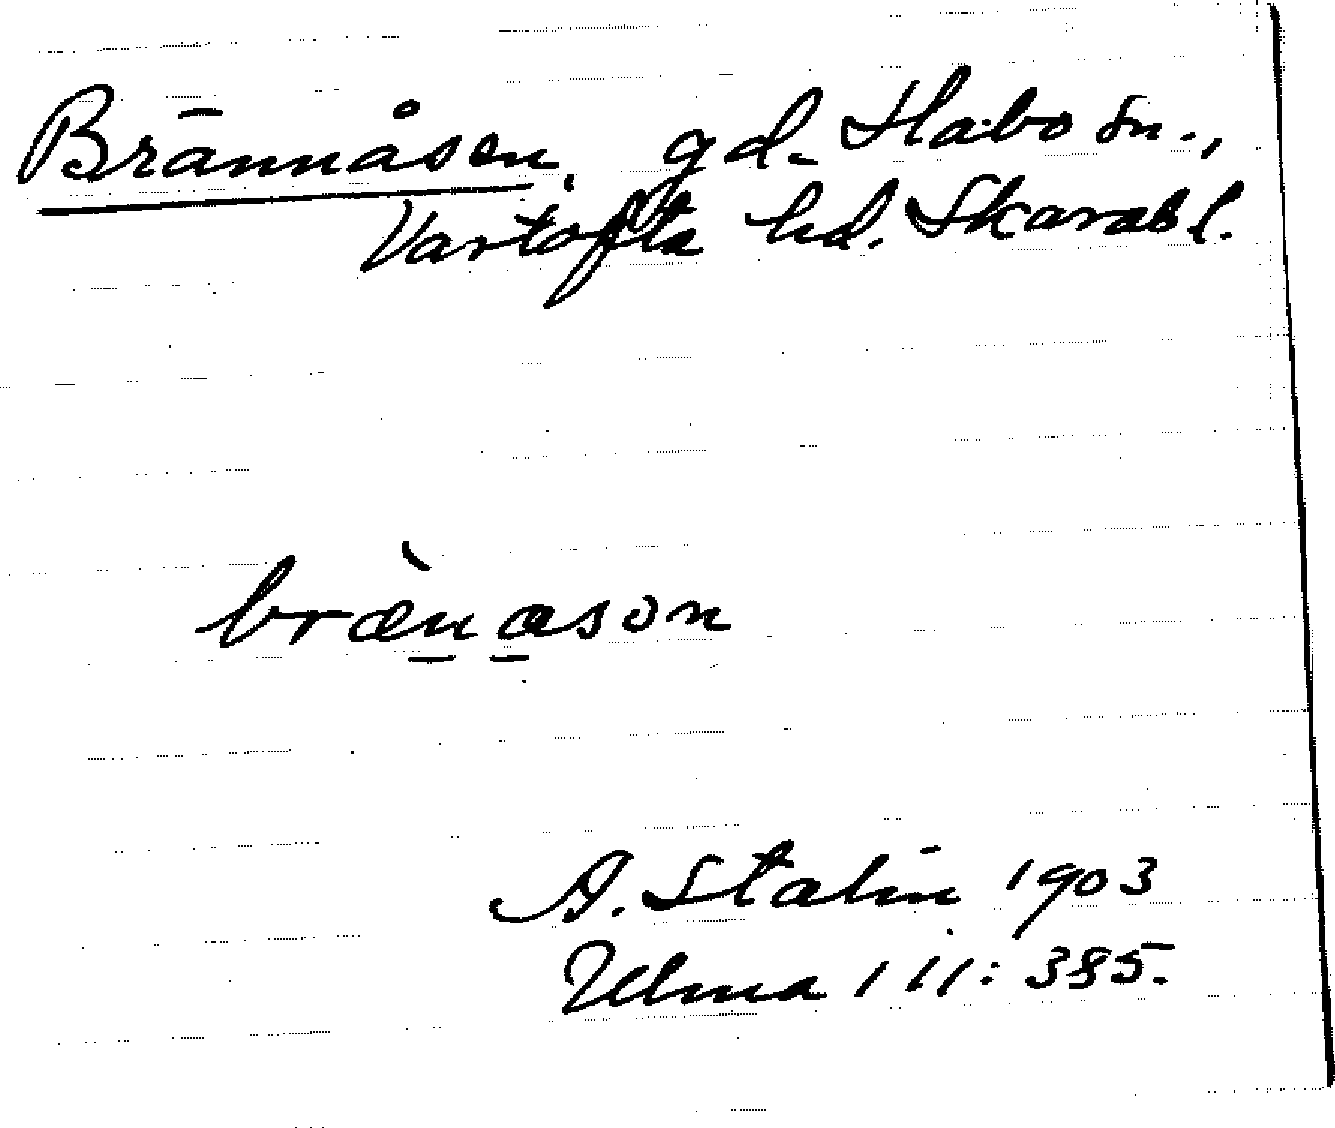 Brännåsen, gd. Habo sn.,
Vartofta hd. Skarabl.
bræ̀n̲a̲son
A. Stalin 1903
Ulma 111:385.